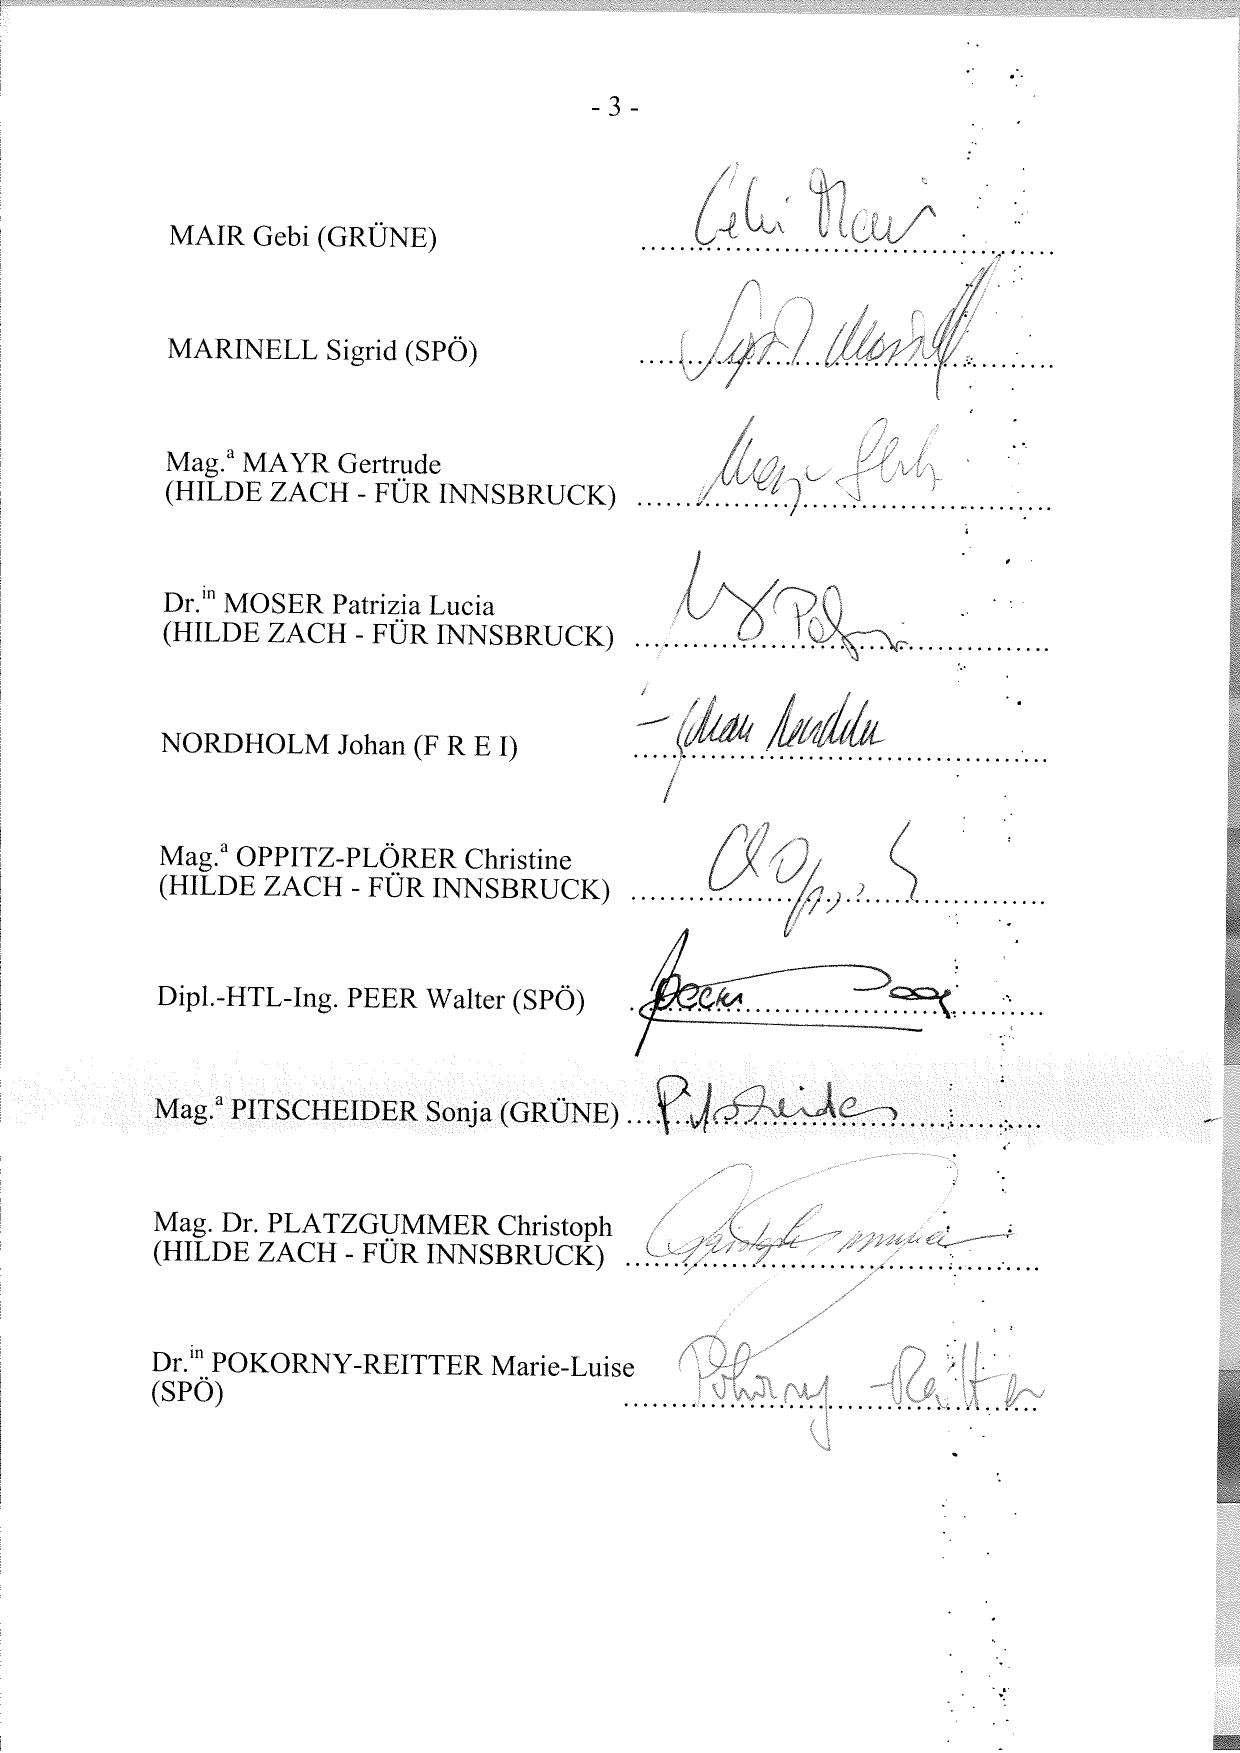 - 3 -
MAIR Gebi (GRÜNE) Gebi Mair
MARINELL Sigrid (SPÖ)
Mag.ª MAYR Gertrude
(HILDE ZACH - FÜR INNSBRUCK)
Dr.in MOSER Patrizia Lucia
(HILDE ZACH - FÜR INNSBRUCK)
NORDHOLM Johan (F R E I)
Mag.ª OPPITZ-PLÖRER Christine
(HILDE ZACH - FÜR INNSBRUCK)
Dipl.-HTL-Ing. PEER Walter (SPÖ)
Mag.ª PITSCHEIDER Sonja (GRÜNE) Pitscheider
Mag. Dr. PLATZGUMMER Christoph
(HILDE ZACH - FÜR INNSBRUCK)
Dr.in POKORNY-REITTER Marie-Luise
(SPÖ) Pokorny-Reitter